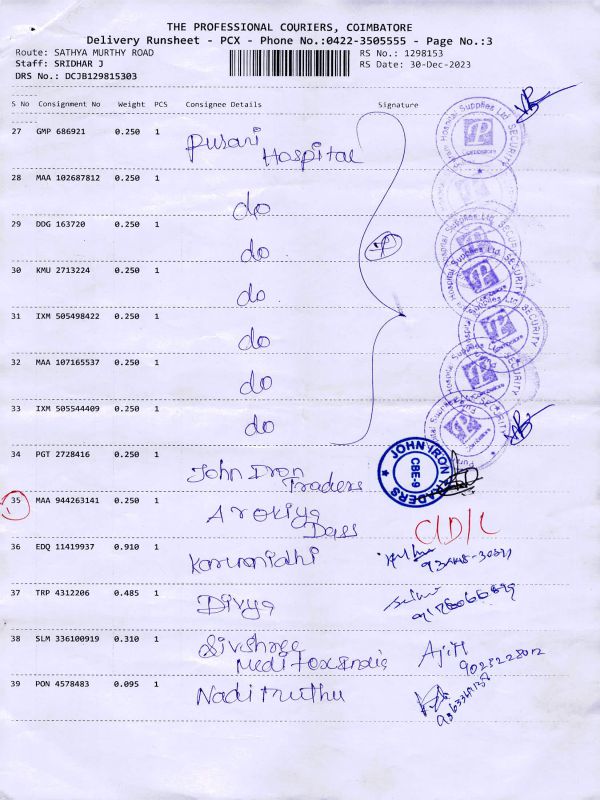 THE PROFESSIONAL COURIERS, COIMBATORE
Delivery Runsheet - PCX - Phone No.:0422-3505555 - Page No.:3
Route: SATHYA MURTHY ROAD RS No.: 1298153
Staff: SRIDHAR J RS Date: 30-Dec-2023
DRS No.: DCJB129815303
S No Consignment No Weight PCS Consignee Details Signature
27 GMP 686921 0.250 1 Pusari Hospital
28 MAA 102687812 0.250 1 do
29 DDG 163720 0.250 1 do
30 KMU 2713224 0.250 1 do
31 IXM 505498422 0.250 1 do
32 MAA 107165537 0.250 1 do
33 IXM 505544409 0.250 1 do
34 PGT 2728416 0.250 1 John Iron Traders
JOHN IRON TRADERS CBE-9
35 MAA 944263141 0.250 1 Arokiya Dass C/D/L
36 EDQ 11419937 0.910 1
37 TRP 4312206 0.485 1 Divya
38 SLM 336100919 0.310 1 Ajith
39 PON 4578483 0.095 1
Hospital Supplies Ltd SECURITY